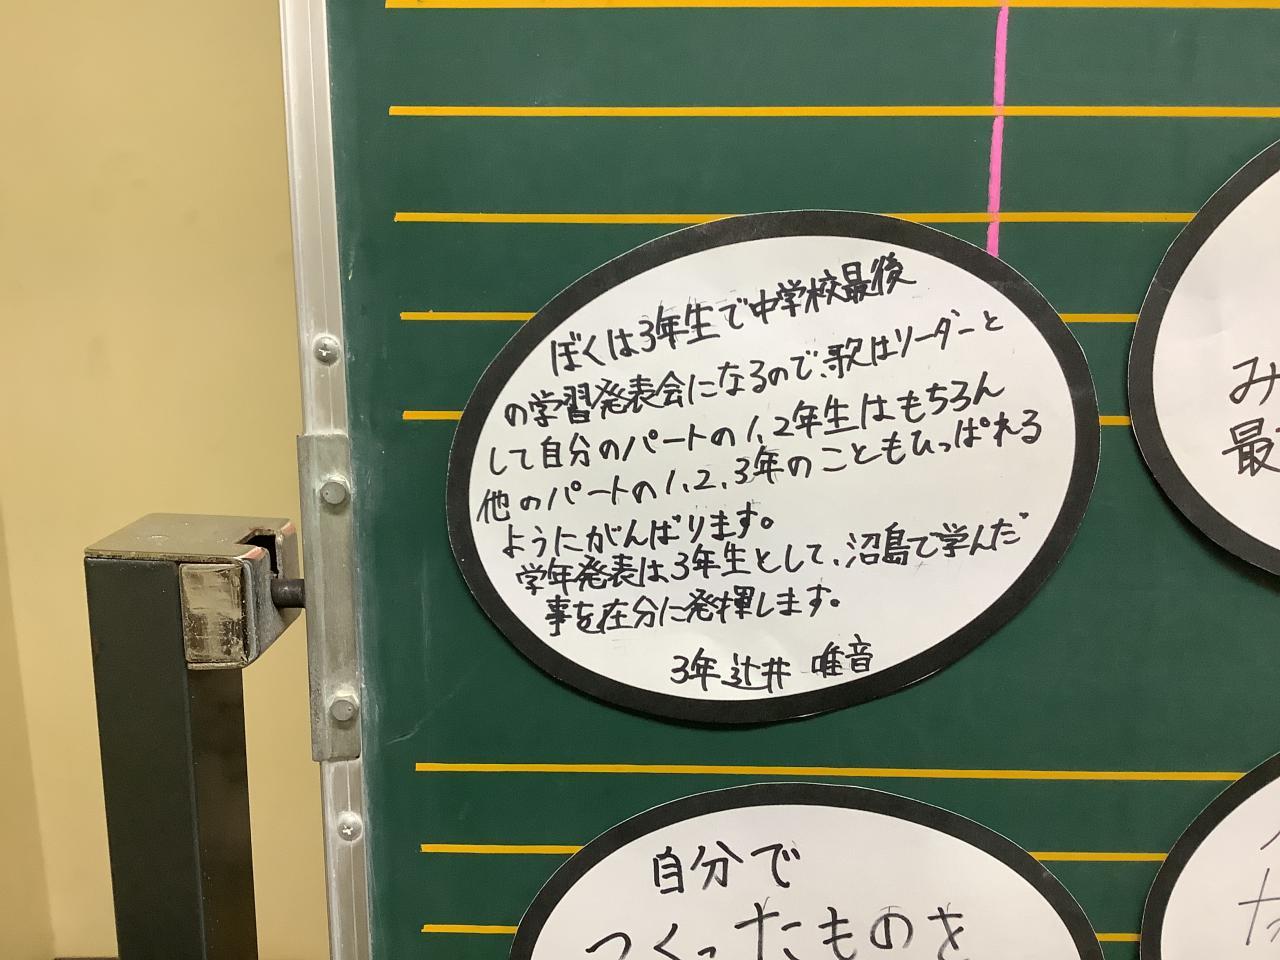 ぼくは3年生で中学校最後
の学習発表会になるので、歌はリーダーと
して自分のパートの1、2年生はもちろん
他のパートの1、2、3年のこともひっぱれる
ようにがんばります。
学年発表は3年生として、沼島で学んだ
事を在分に発揮します。
3年 辻井 唯音
み
最
自分で
つくったものを